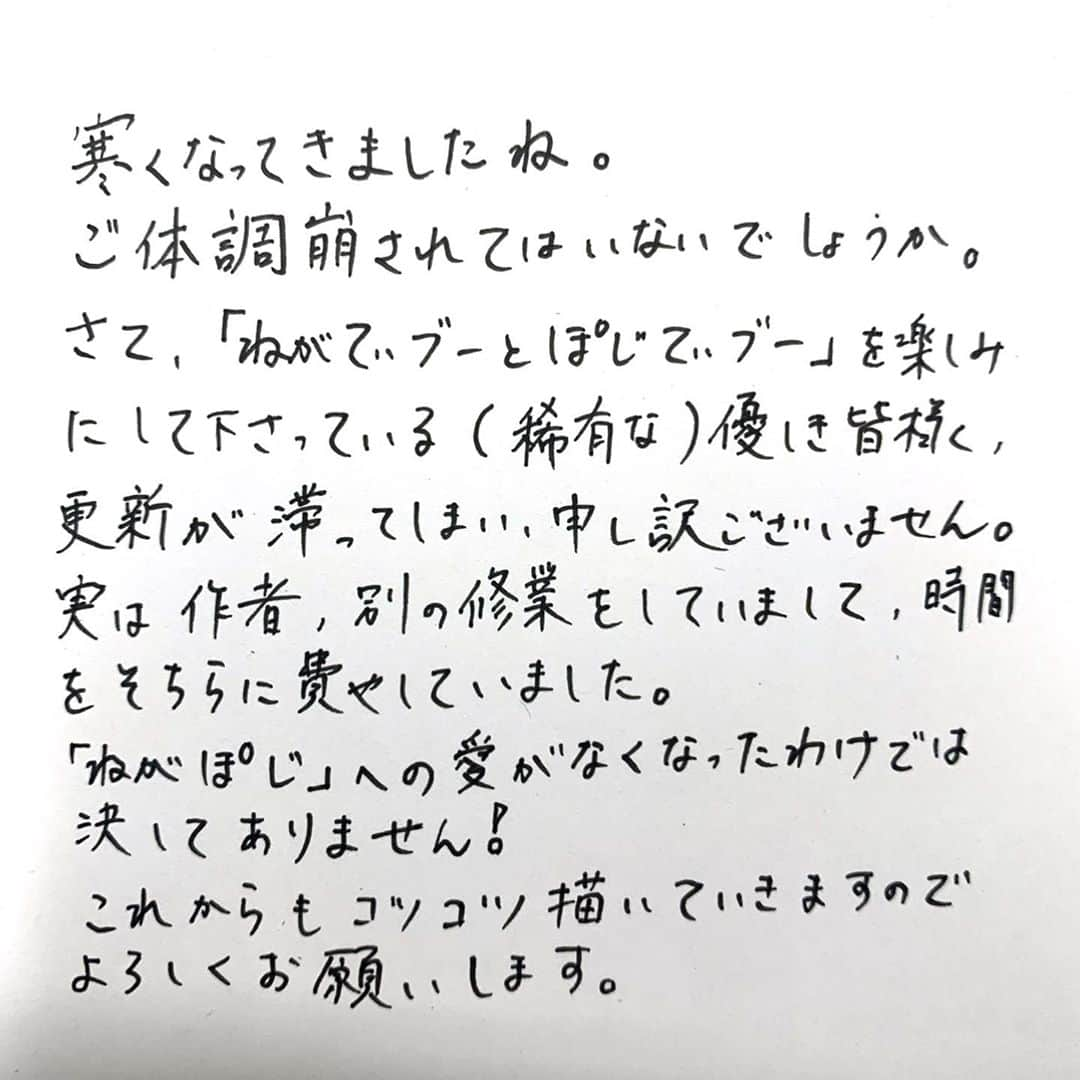 寒くなってきましたね。
ご体調崩されてはいないでしょうか。
さて、「ねがてぃブーとぽじてぃブー」を楽しみ
にして下さっている(稀有な)優しき皆様へ、
更新が滞ってしまい、申し訳ございません。
実は作者、別の修業をしていまして、時間
をそちらに費やしていました。
「ねがぽじ」への愛がなくなったわけでは
決してありません!
これからもコツコツ描いていきますので
よろしくお願いします。